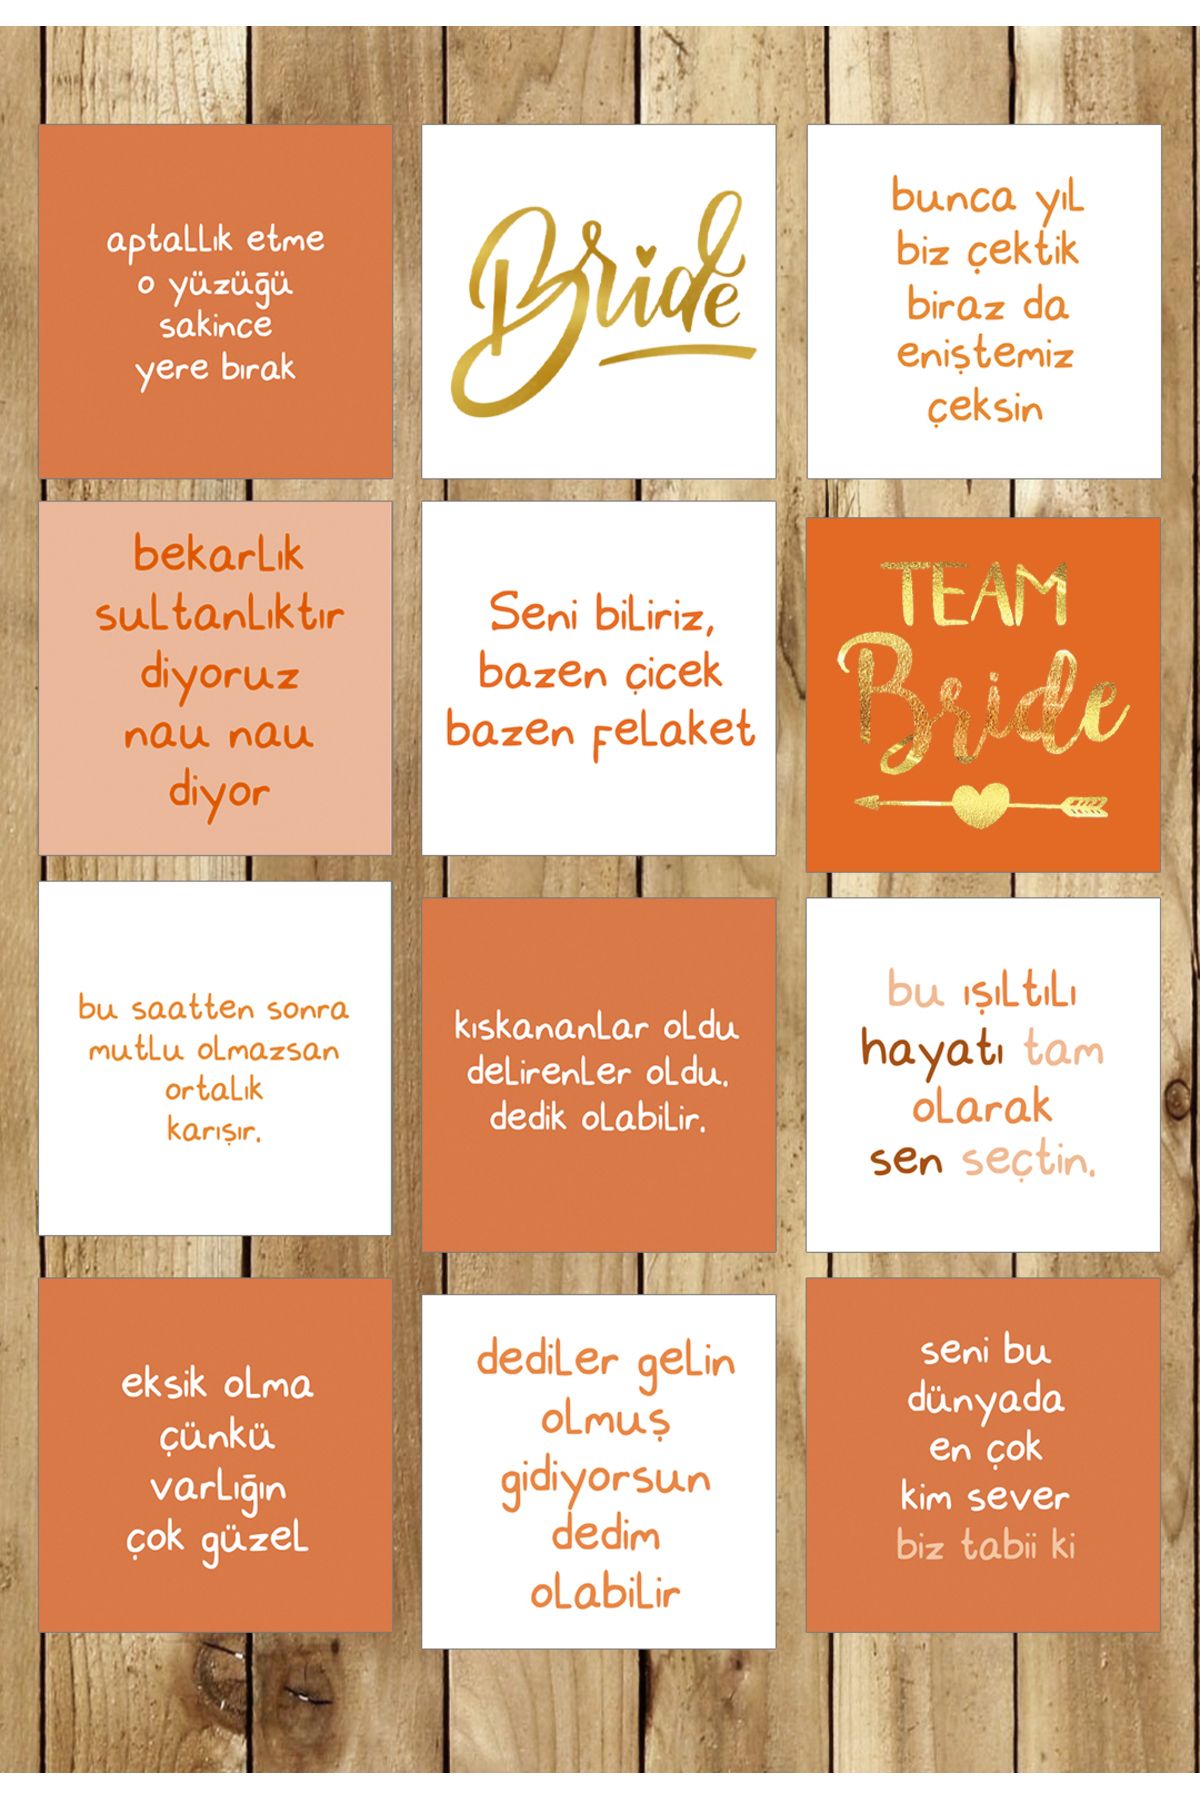 aptallık etme
o yüzüğü
sakince
yere bırak
Bride
bunca yıl
biz çektik
biraz da
eniştemiz
çeksin
bekarlık
sultanlıktır
diyoruz
nau nau
diyor
Seni biliriz,
bazen çicek
bazen felaket
TEAM
Bride
bu saatten sonra
mutlu olmazsan
ortalık
karışır.
kıskananlar oldu
delirenler oldu.
dedik olabilir.
bu ışıltılı
hayatı tam
olarak
sen seçtin.
eksik olma
çünkü
varlığın
çok güzel
dediler gelin
olmuş
gidiyorsun
dedim
olabilir
seni bu
dünyada
en çok
kim sever
biz tabii ki